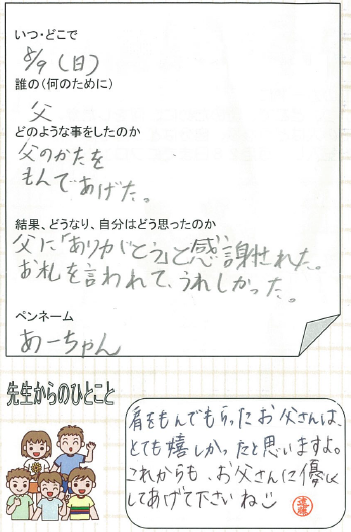 いつ・どこで
8/9(日)
誰の(何のために)
父
どのような事をしたのか
父のかたを
もんであげた。
結果、どうなり、自分はどう思ったのか
父に「ありがとう」と感謝された。
お礼を言われて、うれしかった。
ペンネーム
あーちゃん
先生からのひとこと
肩をもんでもらったお父さんは、
とても嬉しかったと思いますよ。
これからも、お父さんに優しく
してあげて下さいね
遠藤